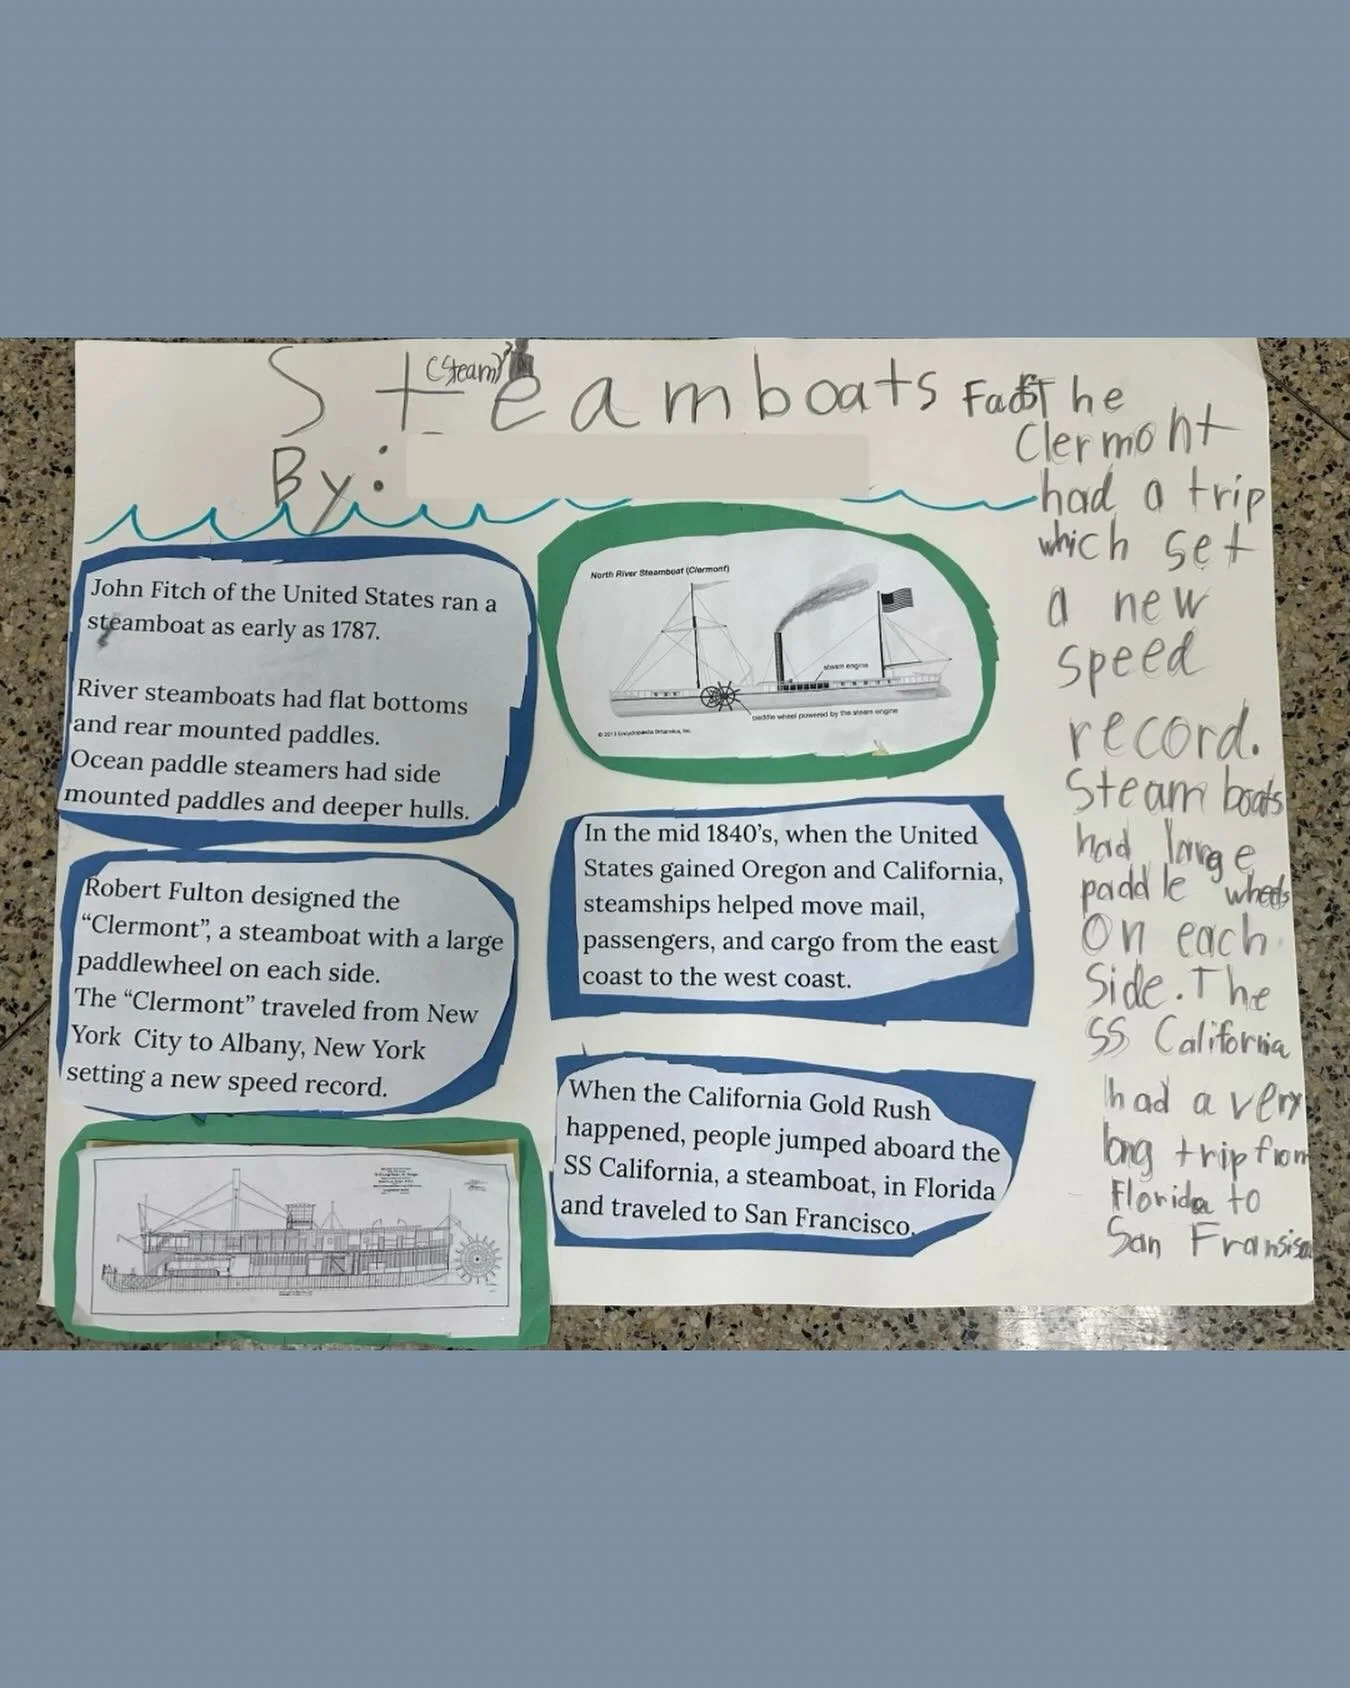 Steamboats
(Steam)
By:
John Fitch of the United States ran a
steamboat as early as 1787.
River steamboats had flat bottoms
and rear mounted paddles.
Ocean paddle steamers had side
mounted paddles and deeper hulls.
Robert Fulton designed the
“Clermont”, a steamboat with a large
paddlewheel on each side.
The “Clermont” traveled from New
York City to Albany, New York
setting a new speed record.
North River Steamboat (Clermont)
steam engine
paddle wheel powered by the steam engine
© 2013 Encyclopædia Britannica, Inc.
In the mid 1840’s, when the United
States gained Oregon and California,
steamships helped move mail,
passengers, and cargo from the east
coast to the west coast.
When the California Gold Rush
happened, people jumped aboard the
SS California, a steamboat, in Florida
and traveled to San Francisco.
The
Clermont
had a trip
which set
a new
speed
record.
Steam boats
had large
paddle wheels
On each
Side. The
SS California
had a very
long trip from
Florida to
San Fransisco